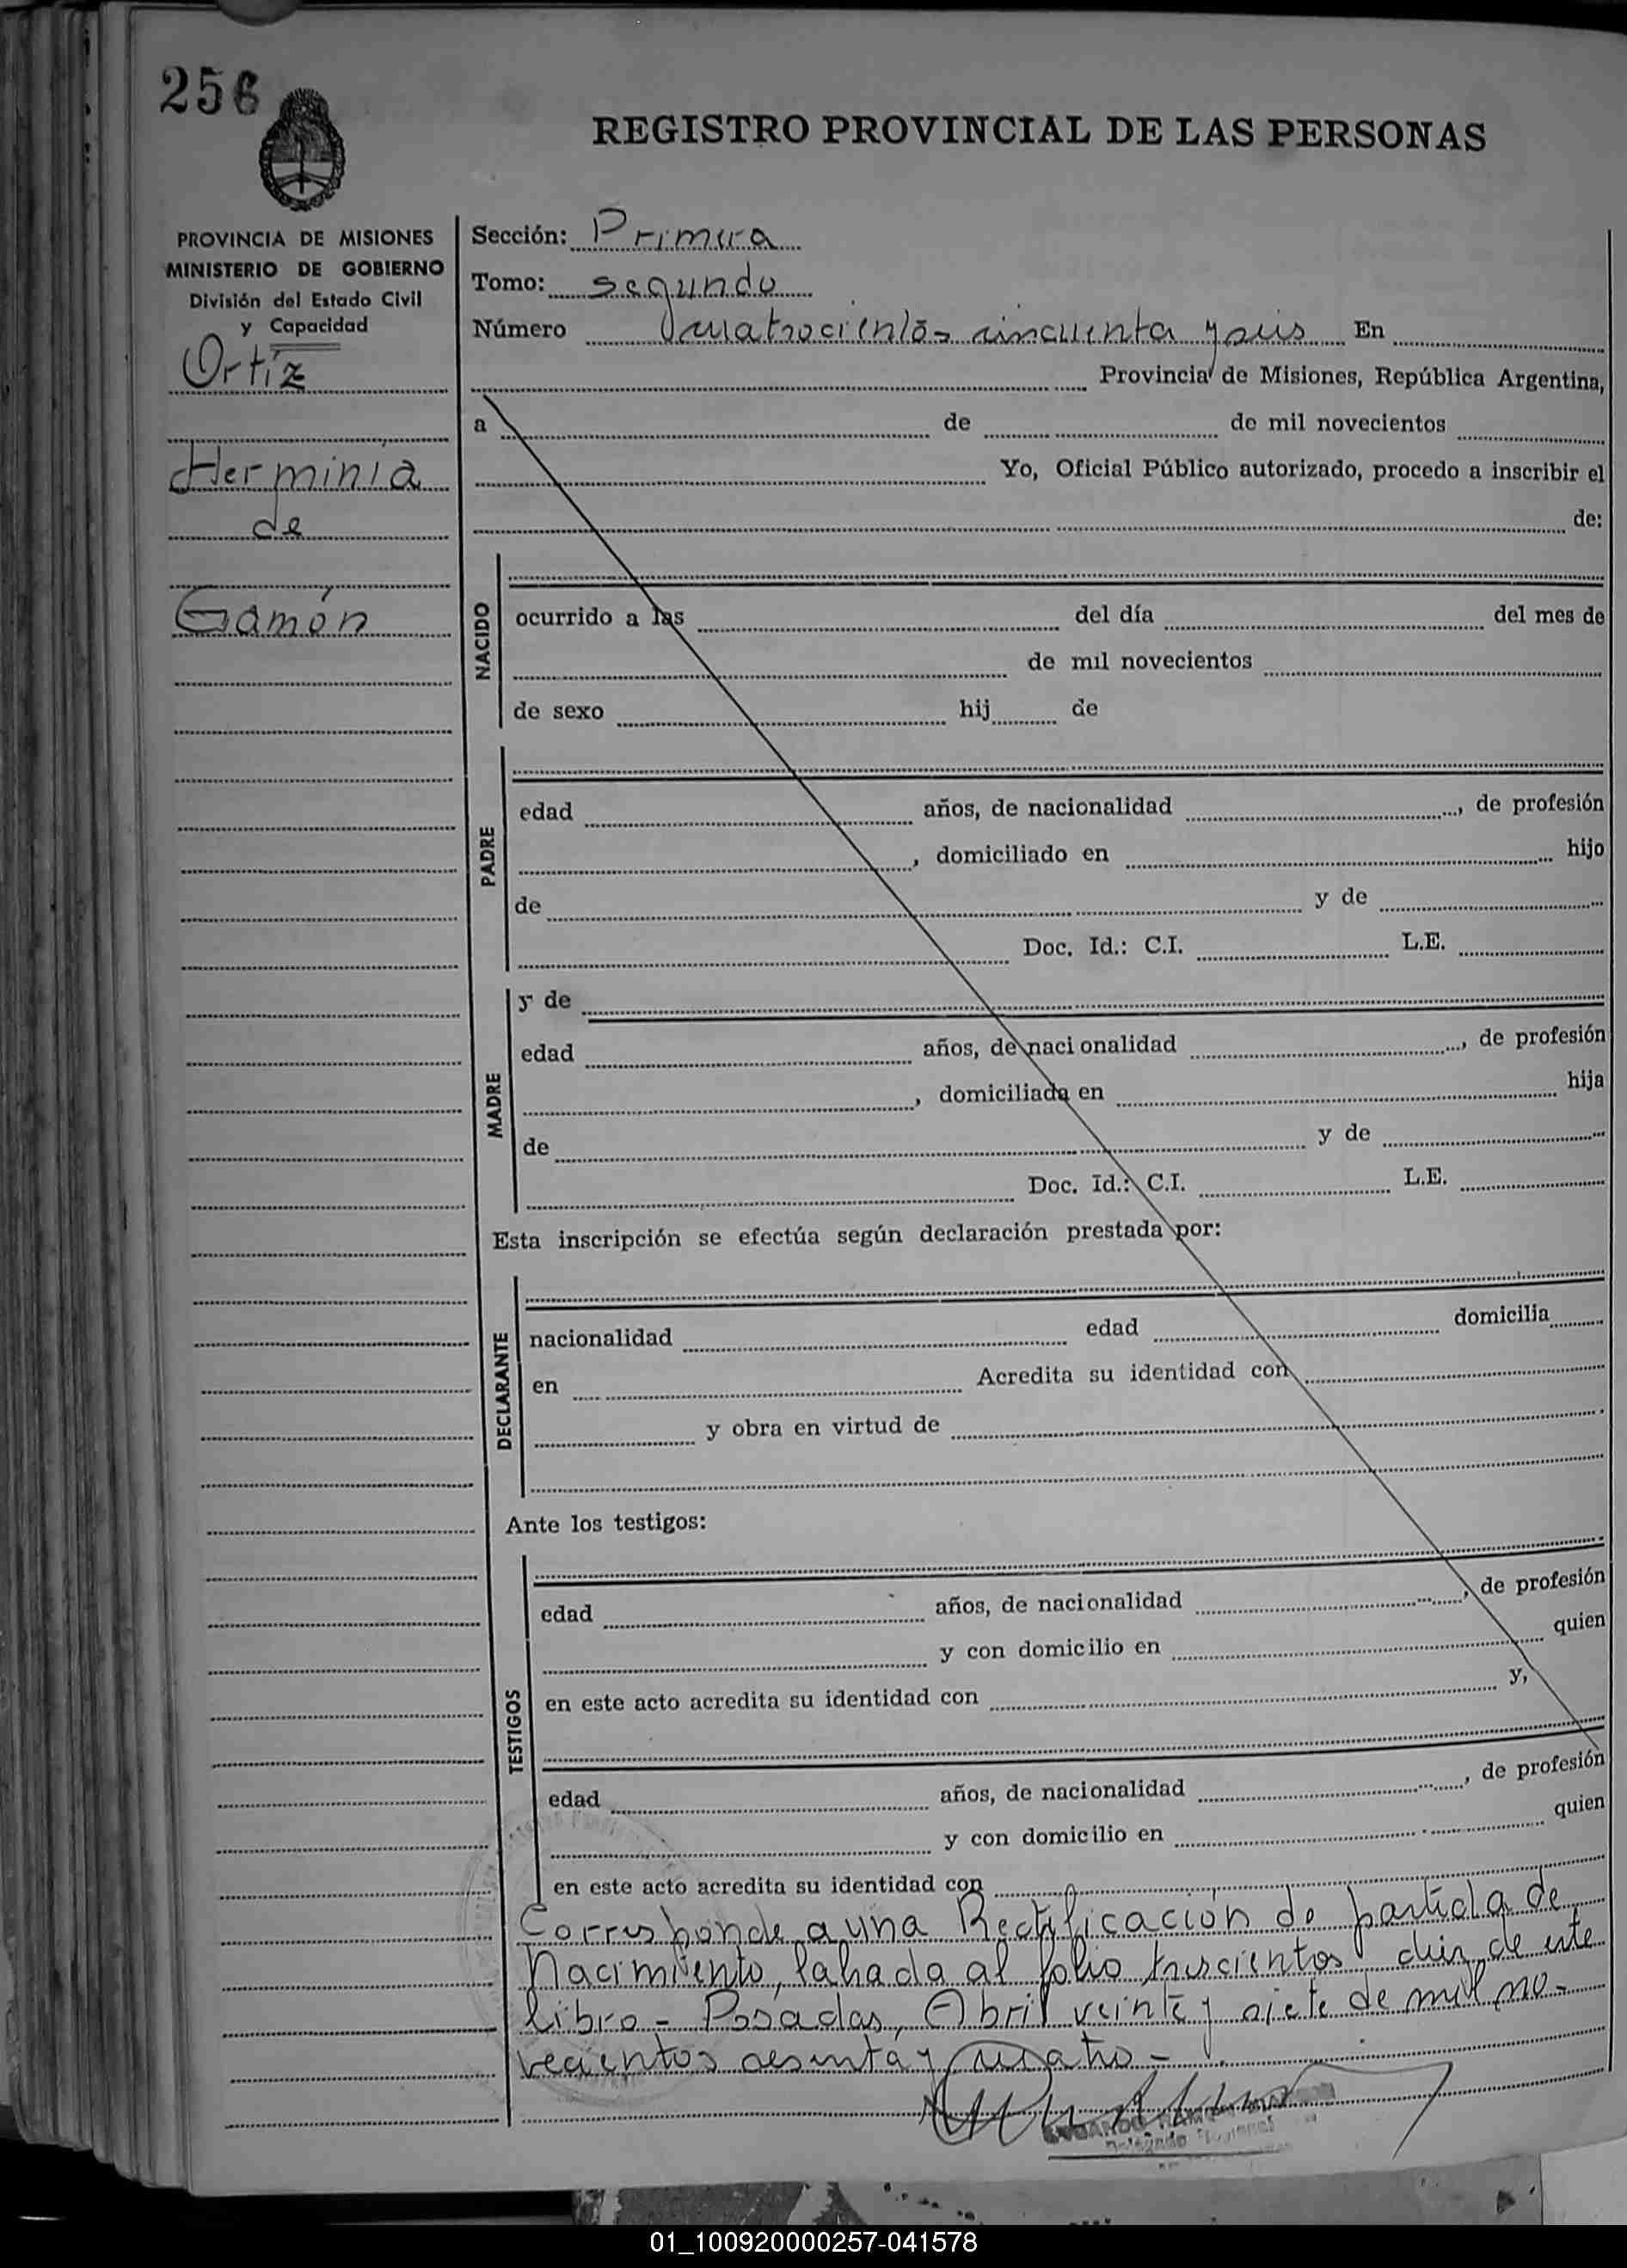 256
REGISTRO PROVINCIAL DE LAS PERSONAS
PROVINCIA DE MISIONES
MINISTERIO DE GOBIERNO
División del Estado Civil
y Capacidad
Ortíz
Herminia
de
Gamón
Sección: Primera
Tomo: segundo
Número cuatrocientos cincuenta y seis En
Provincia de Misiones, República Argentina,
a de de mil novecientos
Yo, Oficial Público autorizado, procedo a inscribir el
de:
NACIDO
ocurrido a las del día del mes de
de mil novecientos
de sexo hij de
PADRE
edad años, de nacionalidad , de profesión
, domiciliado en hijo
de y de
Doc. Id.: C.I. L.E.
MADRE
y de
edad años, de nacionalidad , de profesión
, domiciliada en hija
de y de
Doc. Id.: C.I. L.E.
Esta inscripción se efectúa según declaración prestada por:
DECLARANTE
nacionalidad edad domicilia
en Acredita su identidad con
y obra en virtud de
Ante los testigos:
TESTIGOS
edad años, de nacionalidad , de profesión
y con domicilio en quien
en este acto acredita su identidad con y,
edad años, de nacionalidad , de profesión
y con domicilio en quien
en este acto acredita su identidad con
Corresponde a una Rectificación de partida de
Nacimiento, labrada al folio trescientos diez de este
libro - Posadas, Abril veinte y siete de mil no-
vecientos sesenta y cuatro -
01_100920000257-041578